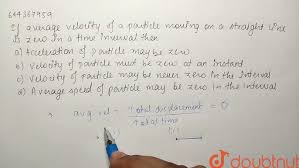 644367959
If average velocity of a particle moving on a straight line
is zero in a time interval then
a) Acceleration of particle may be zero
b) Velocity of particle must be zero at an instant
c) Velocity of particle may be never zero in the interval
d) Average speed of particle may be zero in the interval
avg. vel = Total displacement = 0
Total time
doubtnut